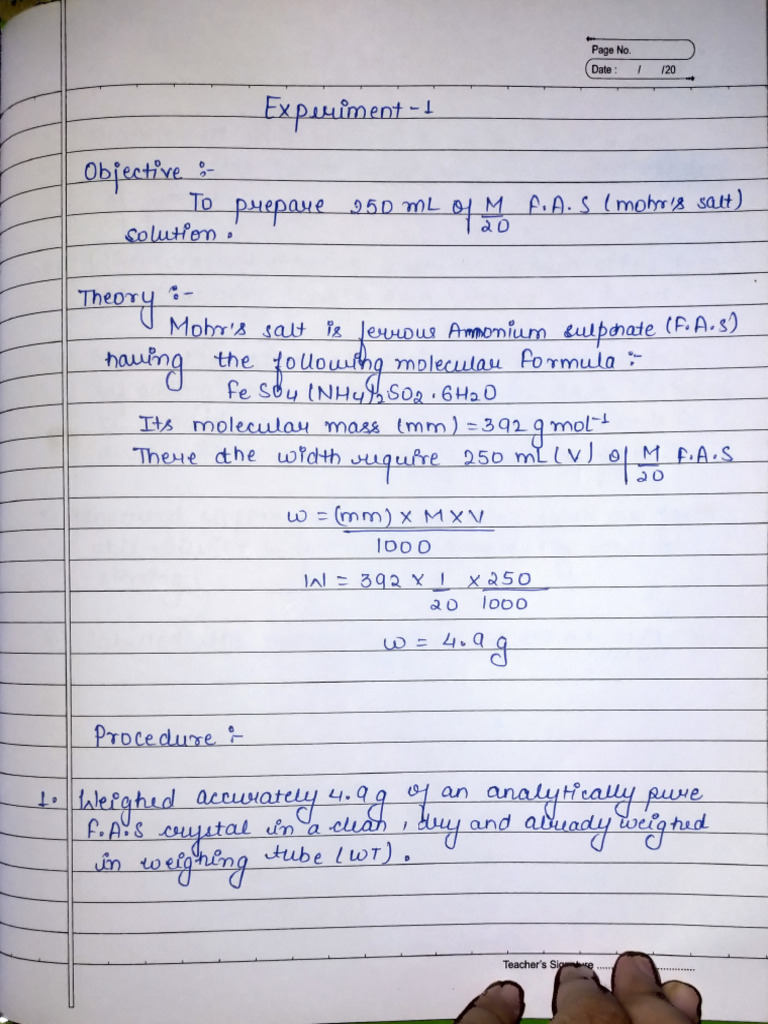 Page No.
Date : / /20
Experiment-1
Objective :-
To prepare 250 mL of M/20 F.A.S (mohr's salt)
solution.
Theory :-
Mohr's salt is ferrous Ammonium sulphate (F.A.S)
having the following molecular formula :-
Fe SO4 (NH4)2SO2 . 6H2O
Its molecular mass (mm) = 392 g mol-1
There the width require 250 mL (V) of M/20 F.A.S
w = (mm) x M x V
1000
W = 392 x 1/20 x 250/1000
w = 4.9 g
Procedure :-
1. Weighed accurately 4.9 g of an analytically pure
F.A.S crystal in a clean, dry and already weighed
in weighing tube (WT).
Teacher's Signature